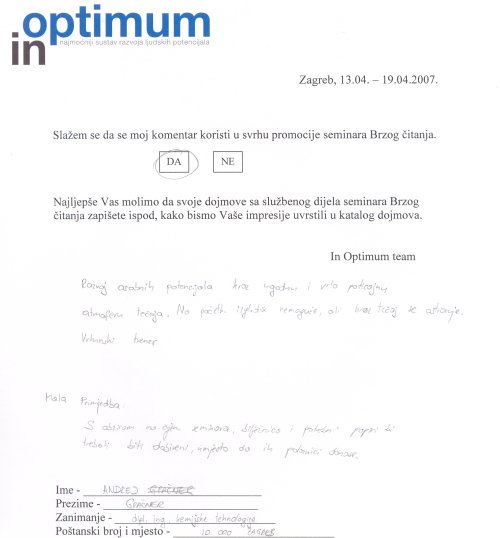 in optimum
najmoćniji sustav razvoja ljudskih potencijala
Zagreb, 13.04. – 19.04.2007.
Slažem se da se moj komentar koristi u svrhu promocije seminara Brzog čitanja.
DA NE
Najljepše Vas molimo da svoje dojmove sa službenog dijela seminara Brzog
čitanja zapišete ispod, kako bismo Vaše impresije uvrstili u katalog dojmova.
In Optimum team
Razvoj osobnih potencijala kroz ugodnu i vrlo poticajnu
atmosferu tečaja. Na početku izgleda nemoguće, ali kroz tečaj se ostvaruje.
Vrhunski trener
Mala Primjedba:
S obzirom na cijenu seminara, bilježnica i potrebni papiri bi
trebali biti dobiveni, umjesto da ih polaznici donose.
Ime - ANDREJ GRAČNER
Prezime - GRAČNER
Zanimanje - dipl. ing. kemijske tehnologije
Poštanski broj i mjesto - 10 000 ZAGREB